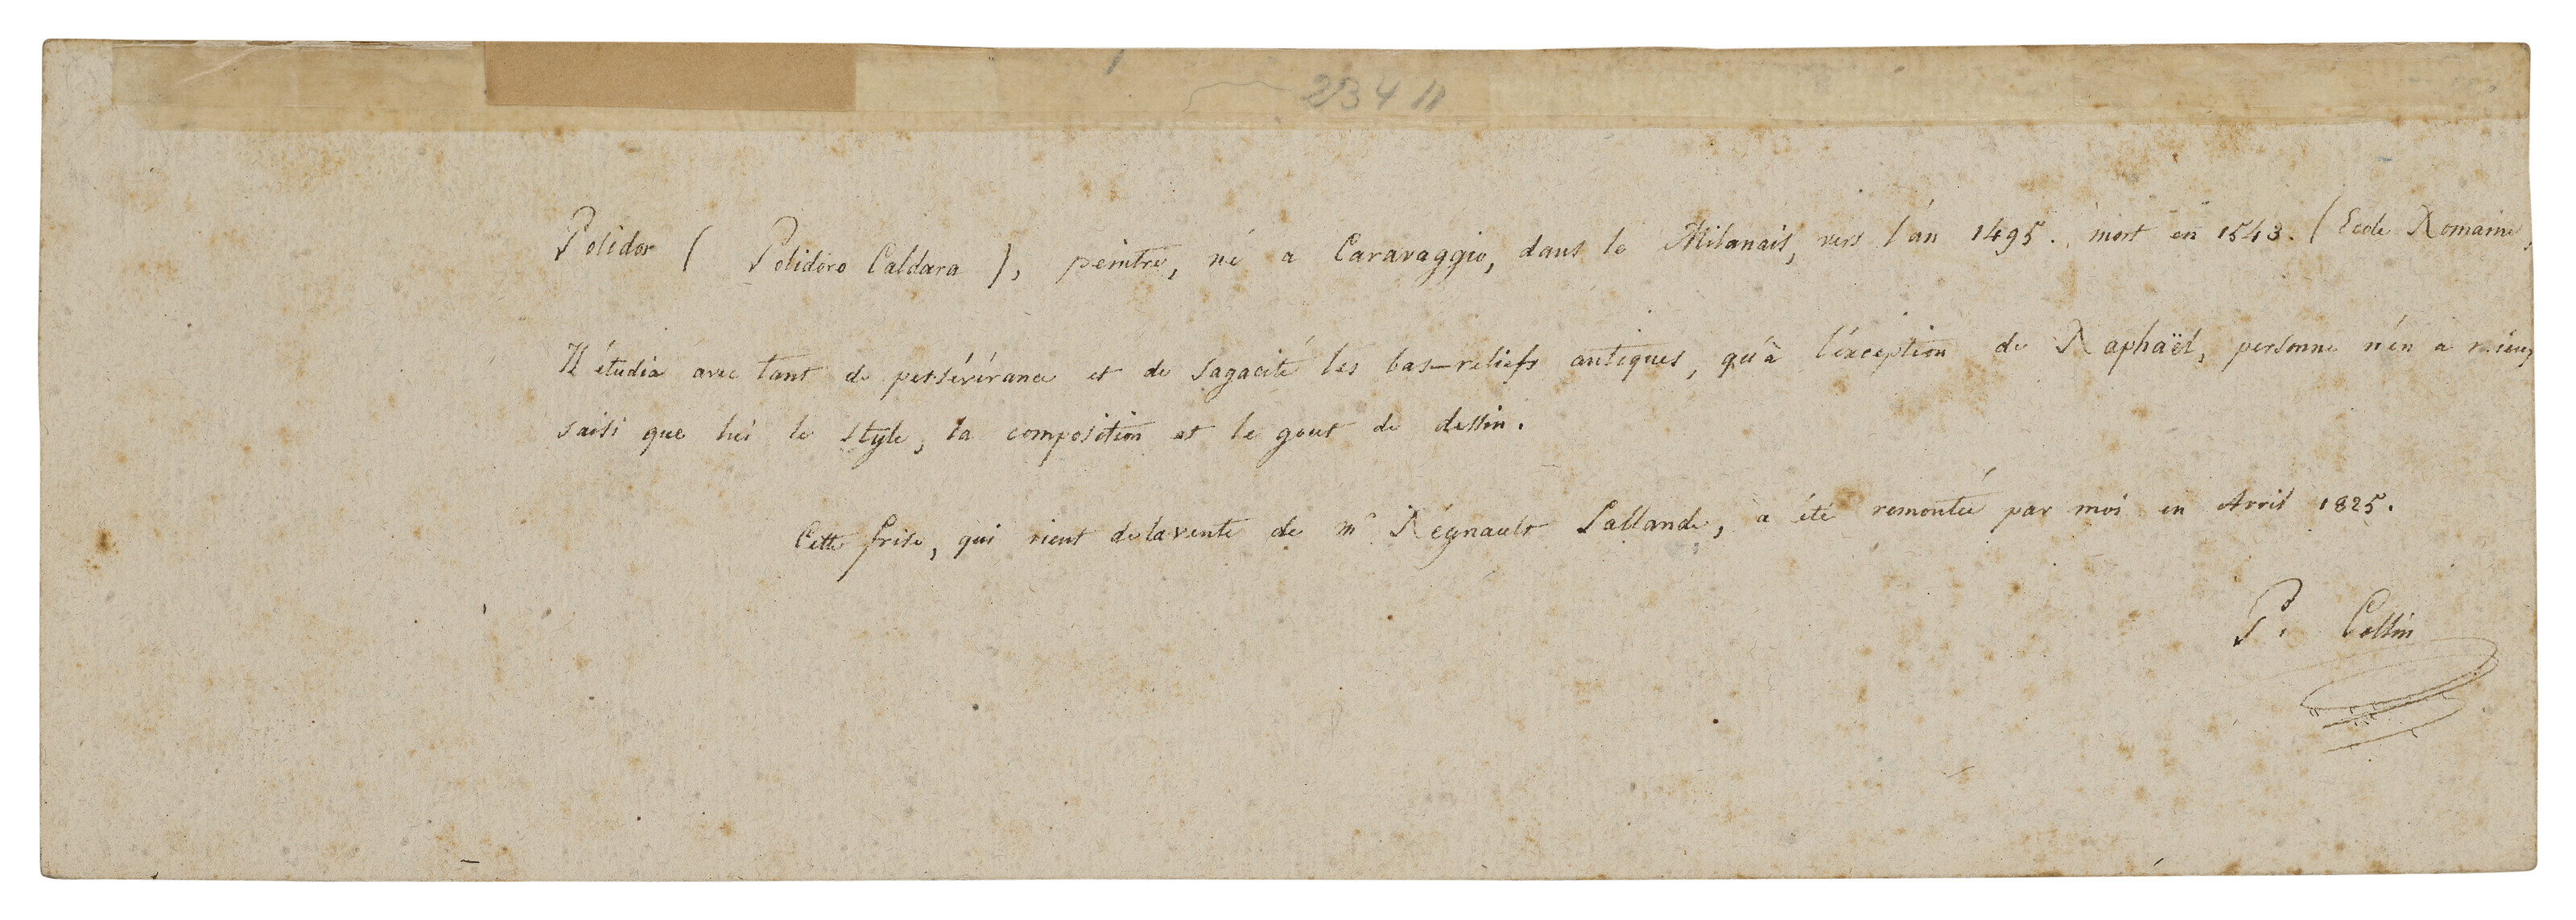 234 11
Polidor ( Polidoro Caldara ), peintre, né a Caravaggio, dans le Milanais, vers l'an 1495. mort en 1543. (Ecole Romaine,
Il étudia avec tant de persévérance et de sagacité les bas-reliefs antiques, qu'à l'éxception de Raphaël, personne n'en a mieux
saisi que lui le style, la composition et le gout de dessin.
Cette frise, qui vient de la vente de mr Régnault Lallande, a été remontée par moi en Avril 1825.
P. Collin